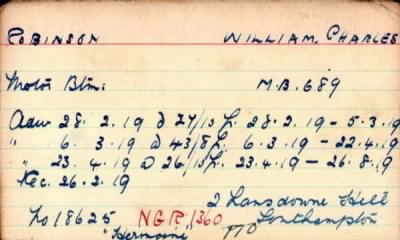 ROBINSON WILLIAM. CHARLES
Motor Btm: M.B. 689
Adv 28. 2. 19 @ 27/10 fr. 28.2.19 - 5.3.19
" 6. 3. 19 @ 43/8 fr. 6.3.19 - 22.4.19
" 23. 4. 19 @ 26/10 fr. 23.4.19 - 26.8.19
Rec. 26.2.19
2 Lansdowne Hill
No 18625 NGR 1360 Southampton
"Hermoine" PTO